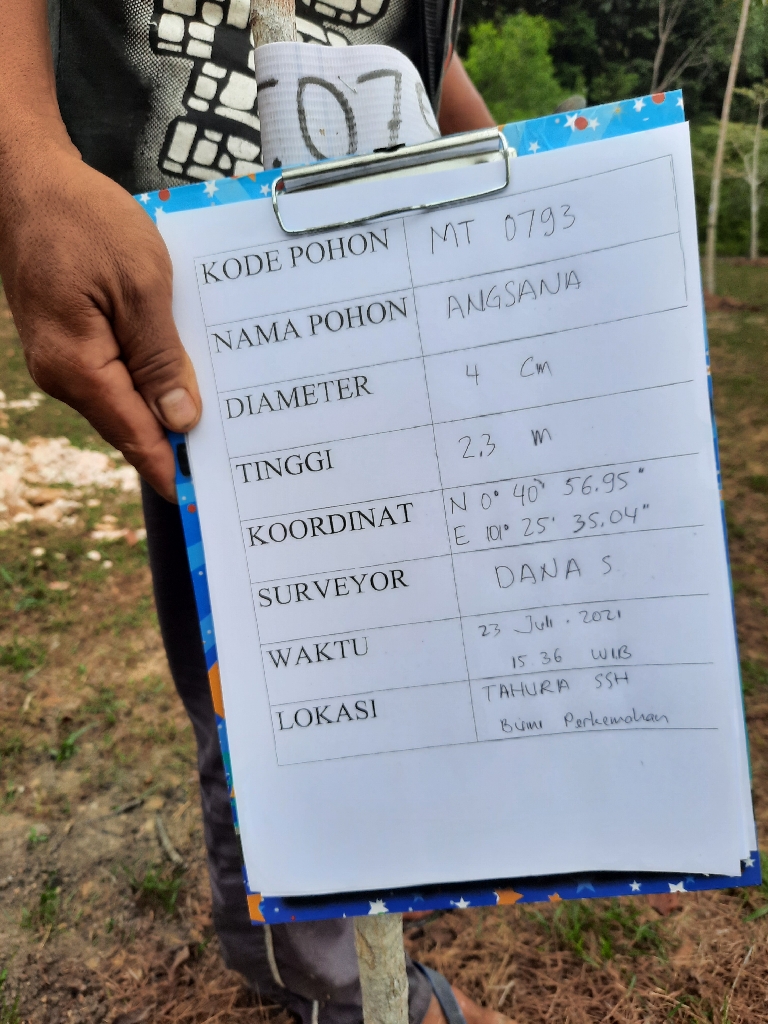 .079
KODE POHON MT 0793
NAMA POHON ANGSANA
DIAMETER 4 Cm
TINGGI 2.3 m
KOORDINAT N 0° 40' 56.95"
E 101° 25' 35.04"
SURVEYOR DANA S
WAKTU 23 Juli . 2021
15.36 WIB
LOKASI TAHURA SSH
Bumi Perkemahan